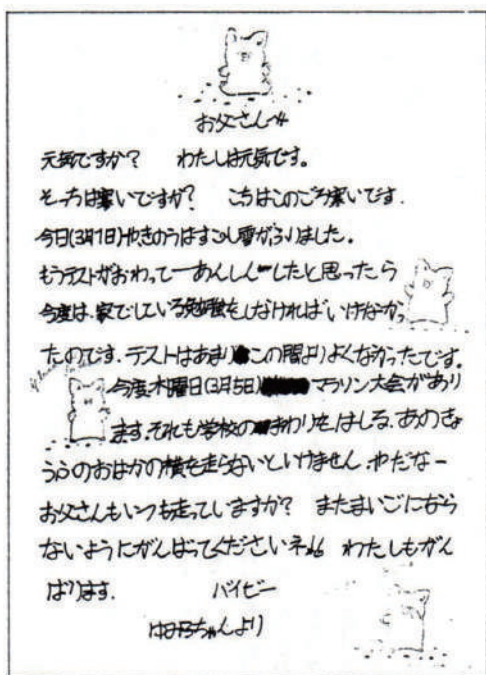 お父さんへ
元気ですか? わたしは元気です。
そっちは寒いですか? こちはこのごろ寒いです.
今日(3月1日)やきのうはすこし雪がふりました。
もうテストがおわって一あんしんーしたと思ったら
今度は、家でしている勉強をしなければいけなかっ
たのです、テストはあまりこの間よりよくなかったです。
今度、木曜日(3月5日)マラソン大会があり
ます、それも学校のまわりをはしる、あのきょ
うふのおはかの横を走らないといけません、やだなー
お父さんもいつも走っていますか? またまいごになら
ないようにがんばってくださいネ わたしもがん
ばります. バイビー
ちゃんより